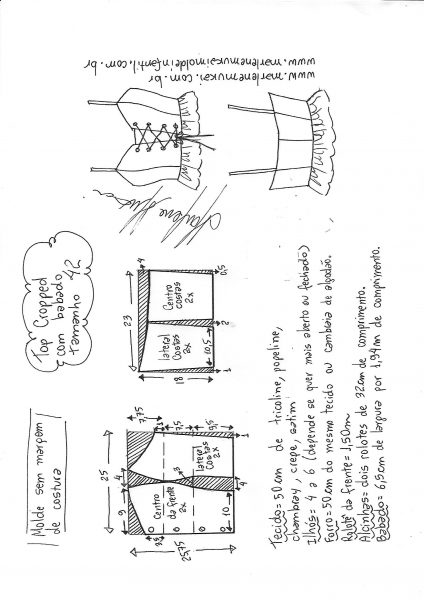 Molde sem margem
de costura
Top Cropped
com babado
tamanho 42
www.marlenemukai.com.br
www.marlenemukaimoldeinfantil.com.br
25
9
4
7,75
7,5
9,5
3
3,5
Centro
da frente
2x
Lateral
Costas
2x
10
4
1
25,75
23
4
18
lateral
Costas
2x
Centro
costas
2x
10,5
1
2
0,5
Tecido= 50 cm de tricoline, popeline,
chambray, crepe, cetim
Ilhós= 4 a 6 (depende se quer mais aberto ou fechado)
Forro= 50 cm do mesmo tecido ou cambraia de algodão.
Rolotê da frente= 1,50m
Alcinhas= dois rolotes de 32cm de comprimento.
Babado= 6,5cm de largura por 1,94m de comprimento.